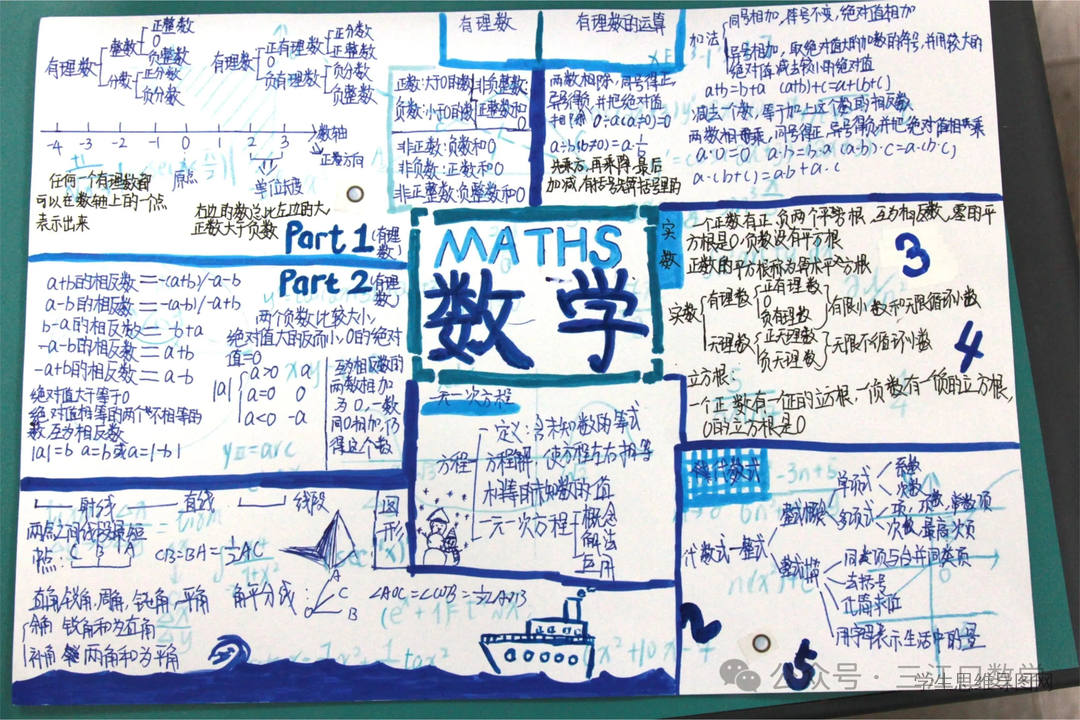 有理数
整数
正整数
0
负整数
分数
正分数
负分数
有理数
正有理数
正分数
正整数
0
负有理数
负分数
负整数
-4 -3 -2 -1 0 1 2 3
数轴
正方向
原点
单位长度
任何一个有理数都
可以在数轴上的一点
表示出来
右边的数总比左边的大,
正数大于负数
Part 1
(有理数)
有理数
有理数的运算
正数:大于0的数
负数:小于0的数
非负整数:
正整数和
0
非正数:负数和0
非负数:正数和0
非正整数:负整数和0
两数相除,同号得正,
异号得负,并把绝对值
相除 0÷a(a≠0)=0
a÷b(b≠0)=a·1/b
先乘方,再乘除,最后
加减,有括号先算括号里的
加法
同号相加,符号不变,绝对值相加
异号相加,取绝对值大的加数的符号,并用较大的
绝对值减去较小的绝对值
a+b=b+a (a+b)+c=a+(b+c)
减去一个数,等于加上这个数的相反数
两数相乘,同号得正,异号得负,并把绝对值相乘
a·b=b·a (a·b)·c=a·(b·c)
a·(b+c)=ab+a·c
Part 2
(有理数)
a+b的相反数=-(a+b)/-a-b
a-b的相反数=-(a-b)/-a+b
b-a的相反数=-b+a
-a-b的相反数=a+b
-a+b的相反数=a-b
绝对值大于等于0
绝对值相等的两个不相等的
数,互为相反数
|a|=b a=b或a=-b
两个负数比较大小,
绝对值大的反而小,0的绝对
值=0
|a|
a>0 a
a=0 0
a<0 -a
互为相反数的
两数相加
为0,一数
同0相加,仍
得这个数
MATHS
数学
实数
一个正数有正、负两个平方根,互为相反数,零的平
方根是0,负数没有平方根
正数的平方根称为算术平方根
3
实数
有理数
正有理数
0
负有理数
有限小数和无限循环小数
无理数
正无理数
负无理数
无限不循环小数
4
立方根:
一个正数有一个正的立方根,一个负数有一个负的立方根,
0的立方根是0
一元一次方程
方程
定义:含未知数的等式
方程解:使方程左右相等
未知数的值
一元一次方程
概念
解法
应用
代数式
代数式-整式
整式概念
单项式
系数
次数
多项式
项,项数,常数项
次数,最高次项
同类项与合并同类项
去括号
化简求值
用字母表示生活中的量
2
5
射线
直线
线段
图形
两点之间线段最短
C B A
CB=BA=1/2AC
直角,锐角,周角,钝角,平角
角平分线:
A
C
O
B
∠AOC=∠COB=1/2∠AOB
余角 锐角和为直角
补角 两角和为平角
公众号·三江口数学
学生思维导图网